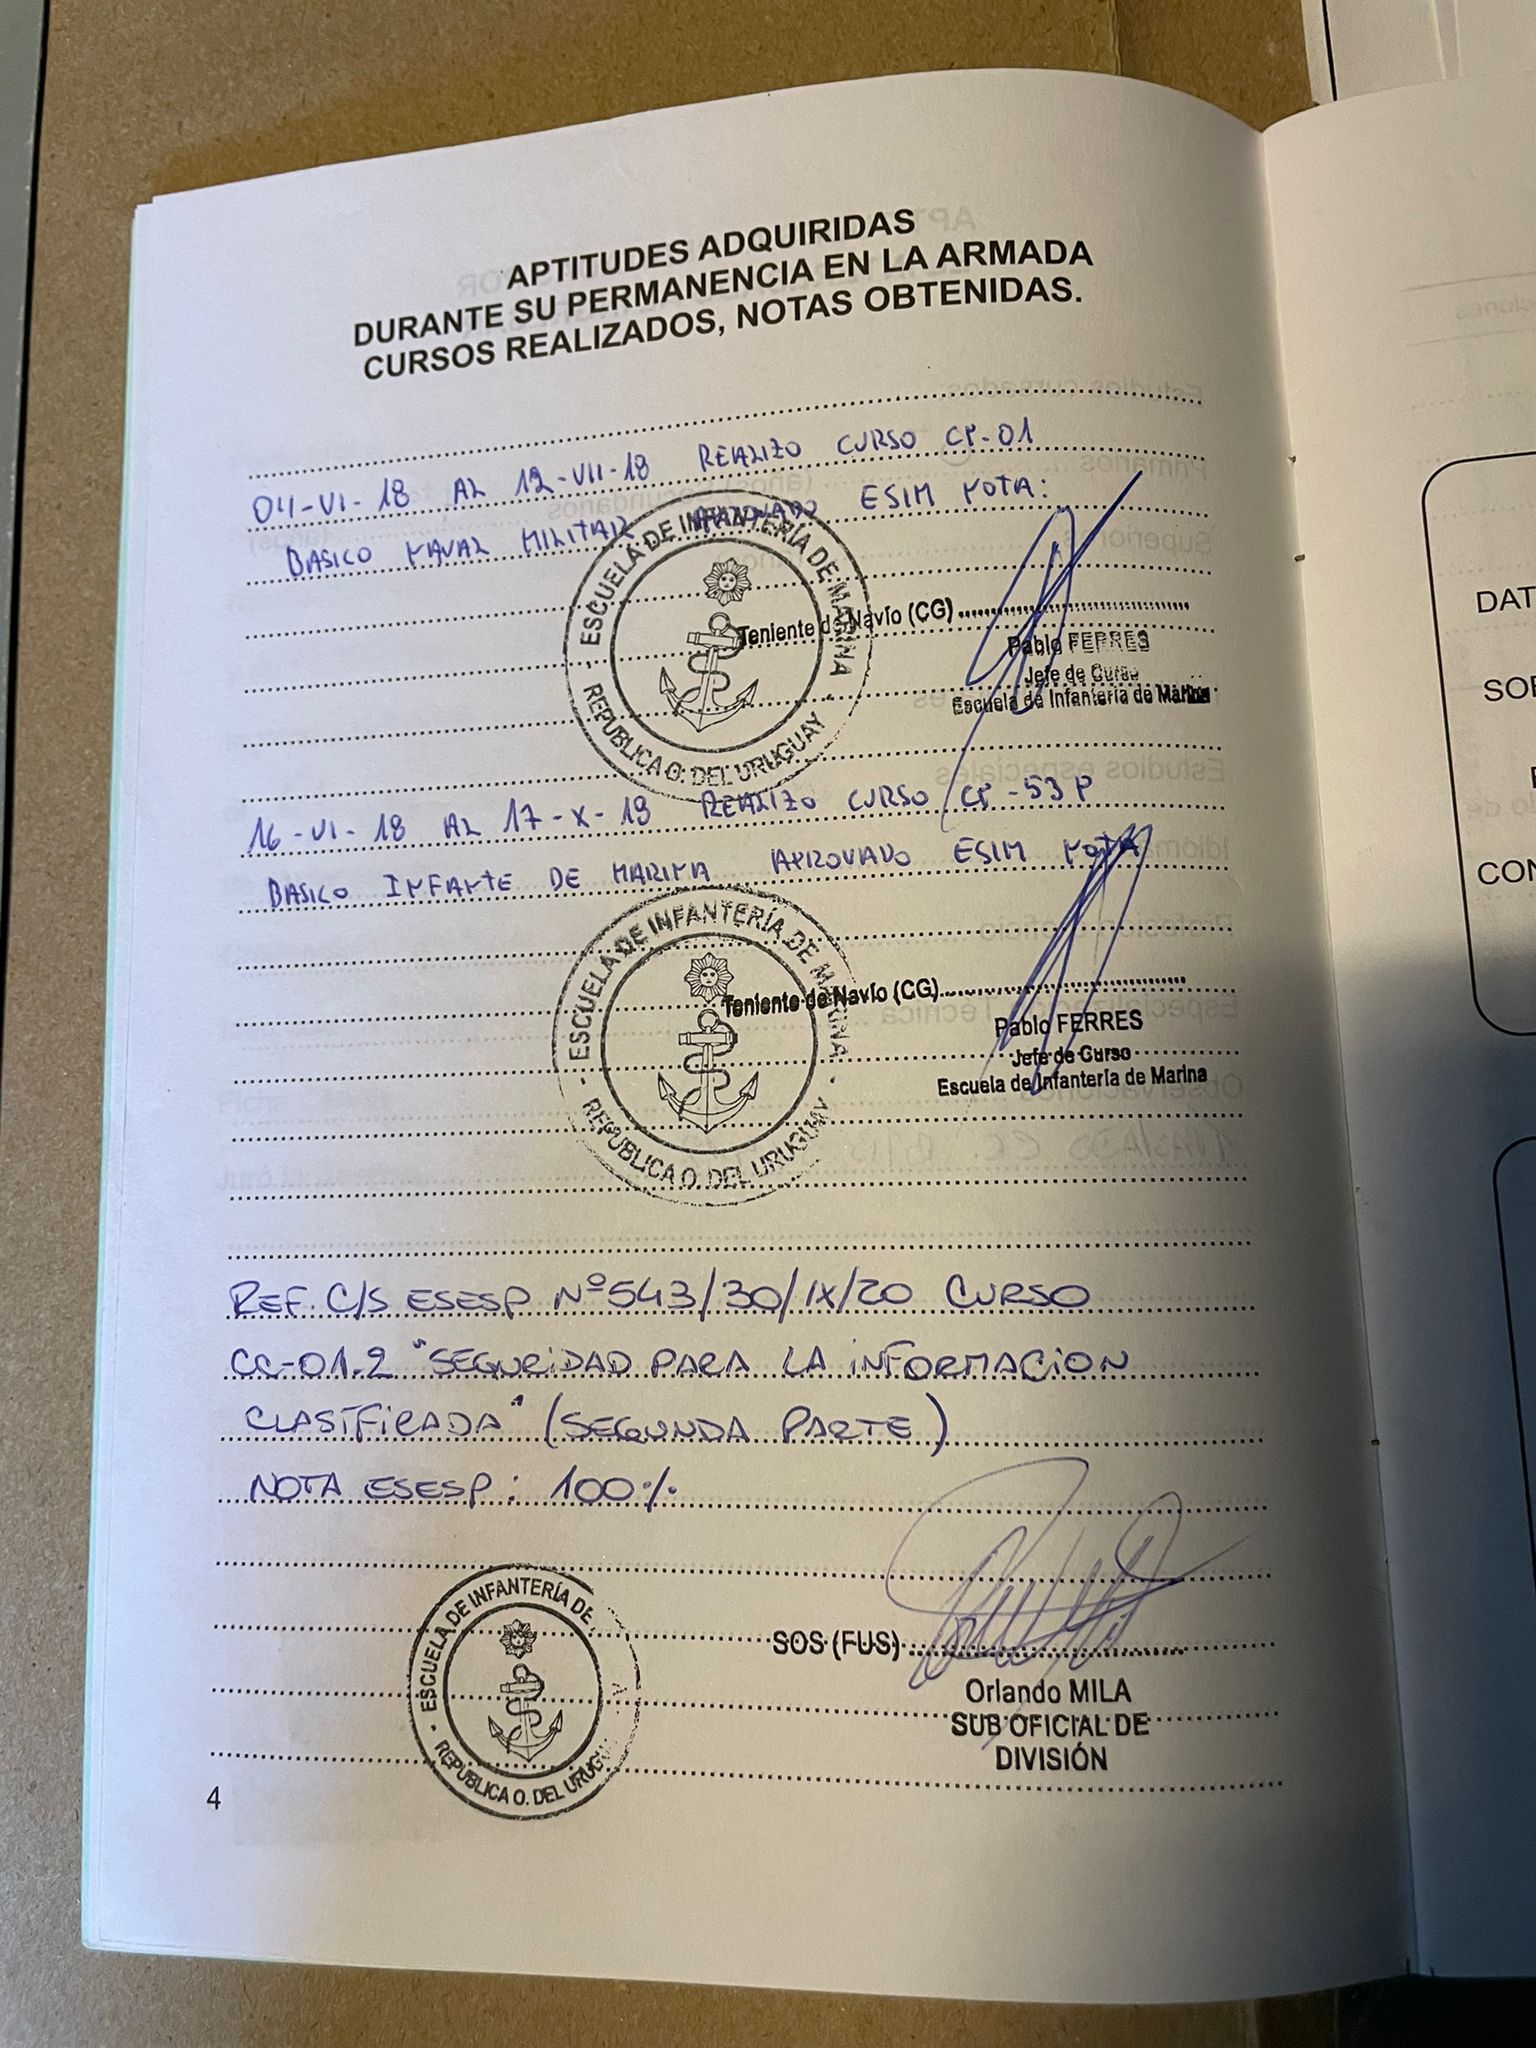 APTITUDES ADQUIRIDAS
DURANTE SU PERMANENCIA EN LA ARMADA
CURSOS REALIZADOS, NOTAS OBTENIDAS.
04-VI-18 AL 12-VII-18 REALIZO CURSO CP-01
BASICO NAVAL MILITAR APROVADO ESIM NOTA:
ESCUELA DE INFANTERÍA DE MARINA
REPUBLICA O. DEL URUGUAY
Teniente de Navío (CG)
Pablo FERRES
Jefe de Curso
Escuela de Infantería de Marina
16-VI-18 AL 17-X-19 REALIZO CURSO CP-53P
BASICO INFANTE DE MARINA APROVADO ESIM NOTA
ESCUELA DE INFANTERÍA DE MARINA
REPUBLICA O. DEL URUGUAY
Teniente de Navío (CG)
Pablo FERRES
Jefe de Curso
Escuela de Infantería de Marina
REF. C/S ESESP Nº543/30/IX/20 CURSO
CC-01.2 "SEGURIDAD PARA LA INFORMACION
CLASIFICADA" (SEGUNDA PARTE)
NOTA ESESP: 100%
ESCUELA DE INFANTERÍA DE
REPUBLICA O. DEL URUGU
SOS (FUS)
Orlando MILA
SUB OFICIAL DE
DIVISIÓN
4
DAT
CON